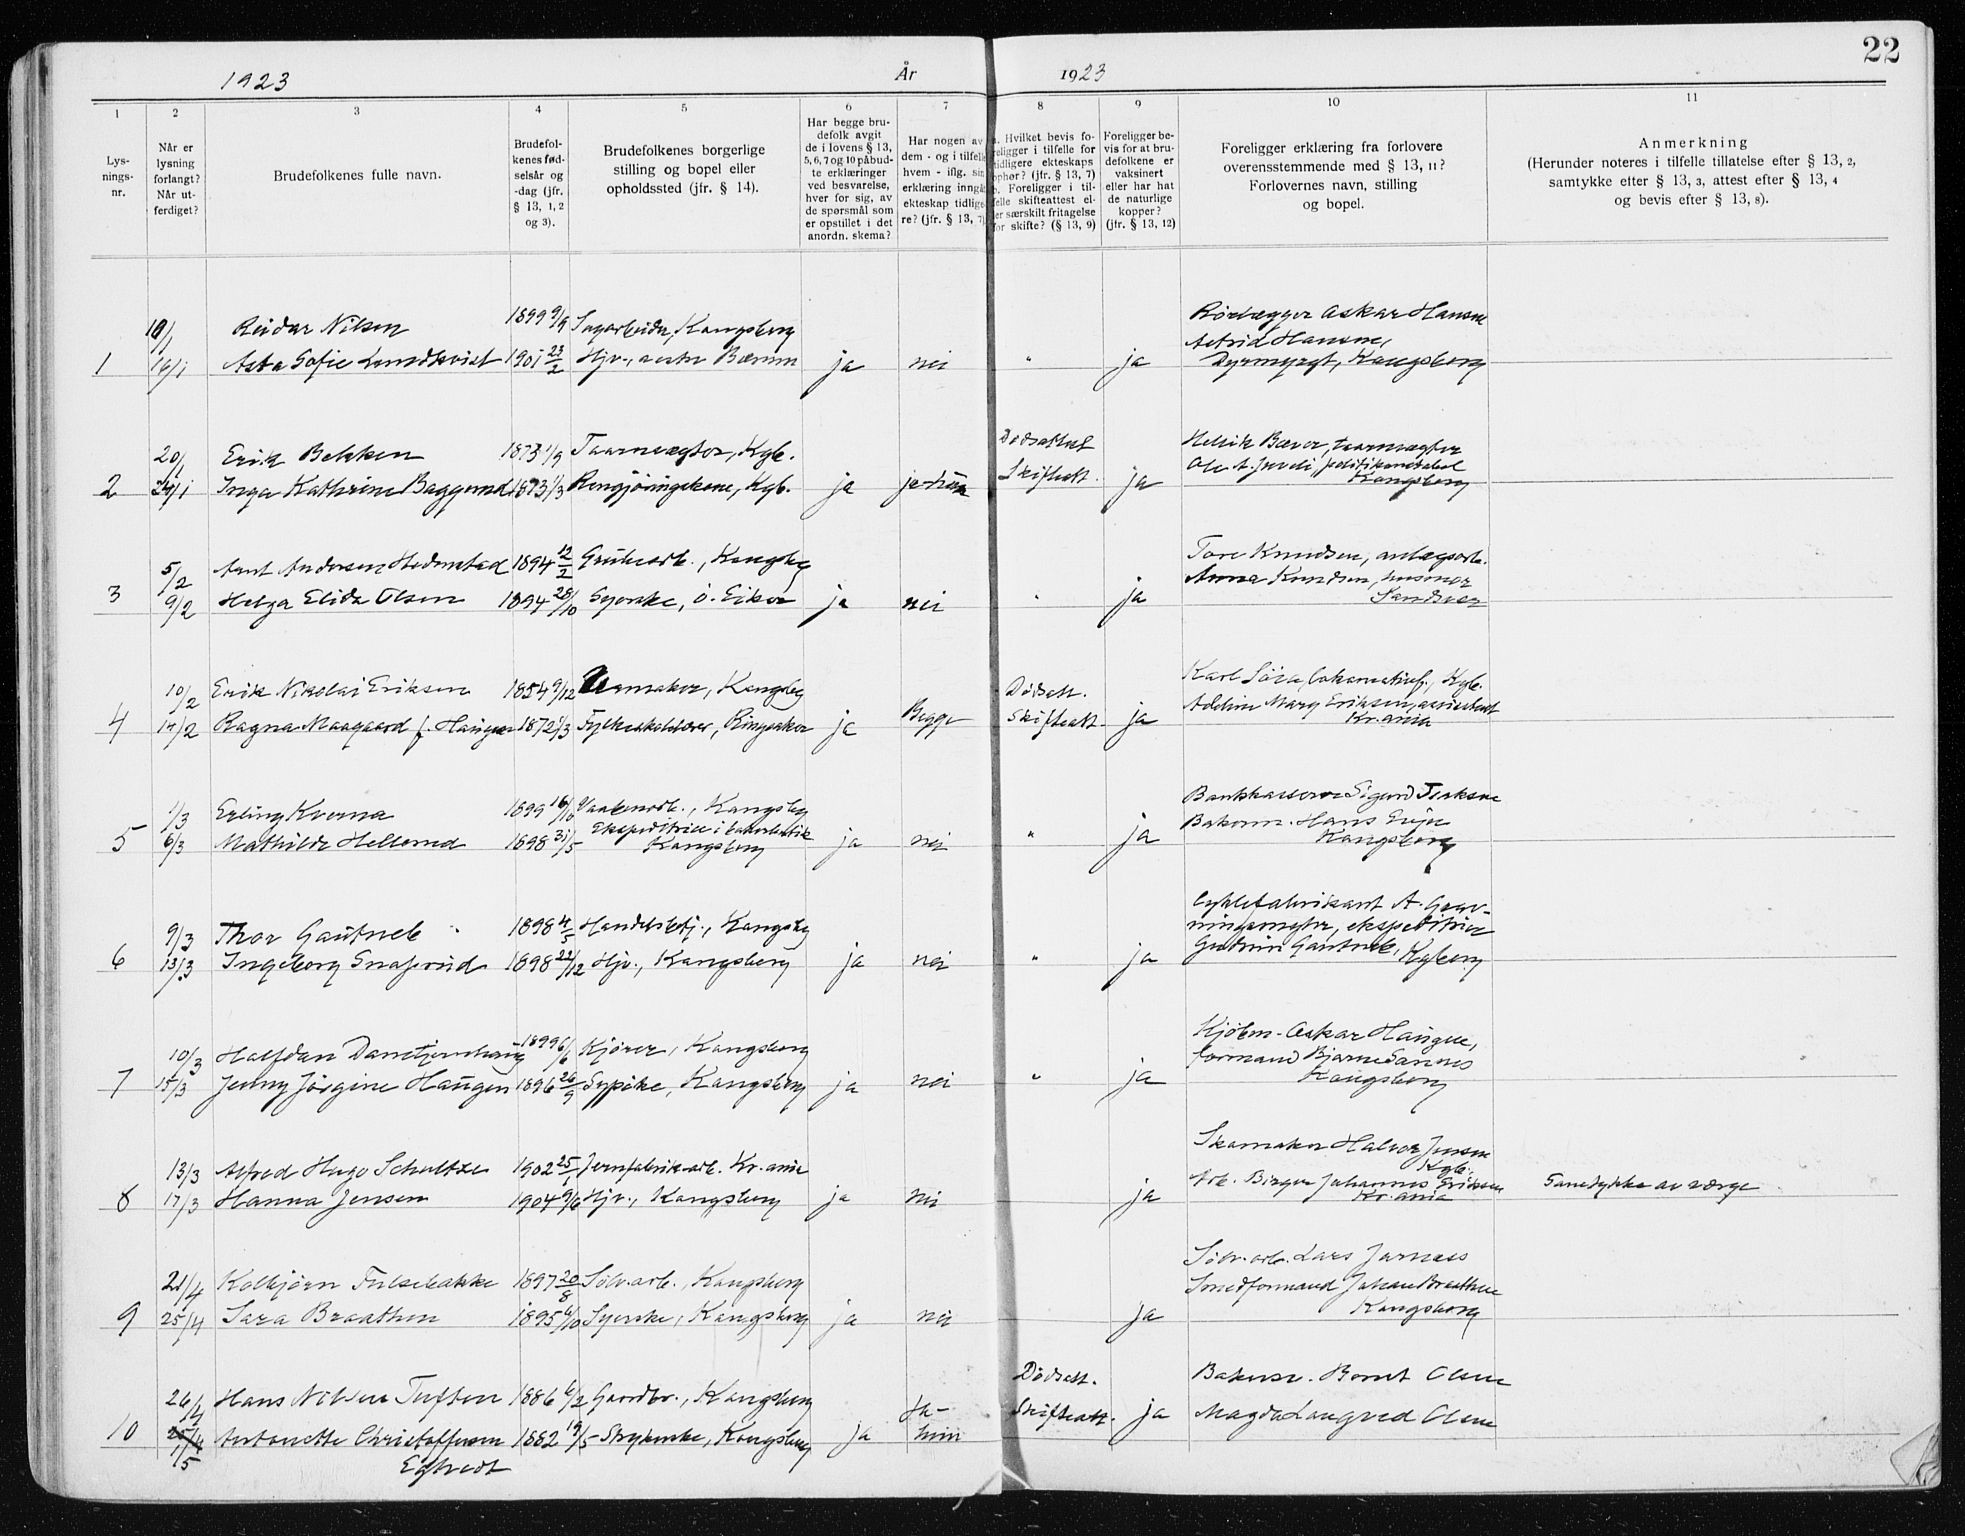 22
1923 År 1923
1 2 3 4 5 6 7 8 9 10 11
Lys-
nings-
nr.
Når er
lysning
forlangt?
Når ut-
ferdiget?
Brudefolkenes fulle navn.
Brudefol-
kenes fød-
selsår og
-dag (jfr.
§ 13, 1, 2
og 3).
Brudefolkenes borgerlige
stilling og bopel eller
opholdssted (jfr. § 14).
Har begge bru-
defolk avgit
de i lovens § 13,
5, 6, 7 og 10 påbud-
te erklæringer
ved besvarelse,
hver for sig, av
de spørsmål som
er opstillet i det
anordn. skema?
Har nogen av
dem - og i tilfelle
hvem - iflg. sin
erklæring inngåt
ekteskap tidlige-
re? (jfr. § 13, 7)
a. Hvilket bevis fo-
religger i tilfelle for
tidligere ekteskaps
ophør? (jfr. § 13, 7)
b. Foreligger i til-
felle skifteattest el-
ler særskilt fritagelse
for skifte? (§ 13, 9)
Foreligger be-
vis for at bru-
defolkene er
vaksinert
eller har hat
de naturlige
kopper?
(jfr. § 13, 12)
Foreligger erklæring fra forlovere
overensstemmende med § 13, 11?
Forlovernes navn, stilling
og bopel.
Anmerkning
(Herunder noteres i tilfelle tillatelse efter § 13, 2,
samtykke efter § 13, 3, attest efter § 13, 4
og bevis efter § 13, 8).
Reidar Nilsen 1899 9/9 Sagarbeider, Kongsberg
1 16/1 Asta Sofie Lundkvist 1901 23/2 Hjv., Bærum ja nei " ja
Rørlægger Oskar Hansen
Astrid Hansen,
Dyrmyrgt, Kongsberg
20/1 Erik Bekken 1873 1/9 Taarnvegter, Kgb. Dødsattest
2 Inga Kathrine Baggerud 1893 1/3 Rengjöringskone, Kgb. ja ja Skifteatt. ja
Bæver, taarnvegter
Ole A. politikonstabel
Kongsberg
5/2 Ant Andersen Hedenstad 1894 12/2 Grubearb., Kongsbg
3 9/2 Helga Elida Olsen 1894 28/10 Syerske, Ö. Eiker ja nei " ja
Tore Knudsen, anlægsarb.
Anna Knudsen, husmor
Sandsvær
10/2 Erik Nikolai Eriksen 1854 9/12 Urmaker, Kongsbg Dødsatt.
4 14/2 Ragna Maagaard f. Haugen 1872 1/3 Fylkesskolelærer, Ringsaker ja Begge Skifteatt. ja
Karl lokomotivf., Kgb.
Adeline Marg Eriksen, assistent
Kr.ania
1/3 Erling Kverna 1899 16/10 Vaabenarb., Kongsbg
5 6/3 Mathilde Hellerud 1898 31/5 Ekspeditrice i bakerbutik
Kongsberg ja nei " ja
Bankkasserer Sigurd Isaksen
Bakerm. Hans
Kongsberg
9/3 Thor Gautneb 1898 4/5 Handelsbetj., Kongsbg
6 13/3 Ingeborg Snaprud 1898 22/12 Hjv., Kongsberg ja nei " ja
Cyklefabrikant A. Grav-
ningsmyhr, ekspeditrice
Gudrun Gautneb, Kgberg
10/3 Halfdan Damtjernhaug 1899 6/6 Kjører, Kongsberg
7 15/3 Jenny Jörgine Haugen 1896 26/9 Sypike, Kongsberg ja nei " ja
Kjøbm. Oskar Haugen,
formand Bjarne Sannes
Kongsberg
13/3 Alfred Hugo Schultze 1902 25/1 Jernfabrik-arb. Kr.ania
8 17/3 Hanna Jensen 1904 9/6 Hjv., Kongsberg ja nei ja
Skomaker Halvor Jensen
Kgb.
Arb. Birger Johannes Eriksen
Kr.ania
Samtykke av værge
21/4 Kolbjörn Fulsebakke 1897 20/8 Sölvarb., Kongsberg
9 25/4 Sara Braathen 1895 6/10 Syerske, Kongsberg ja nei ja
Sölv.arb. Lars Jarnæss
Smedformand Johan Braathen
Kongsberg
26/4 Hans Nilsen Tuften 1886 6/2 Gaardbr., Kongsberg Dødsatt.
10 1/5 Antonette Christoffersen 1882 19/5 Strykerske, Kongsberg ja Ja-
hun Skifteatt. ja
Egtvedt
Bakersv. Bernt Olsen
Magda Langerud Olsen